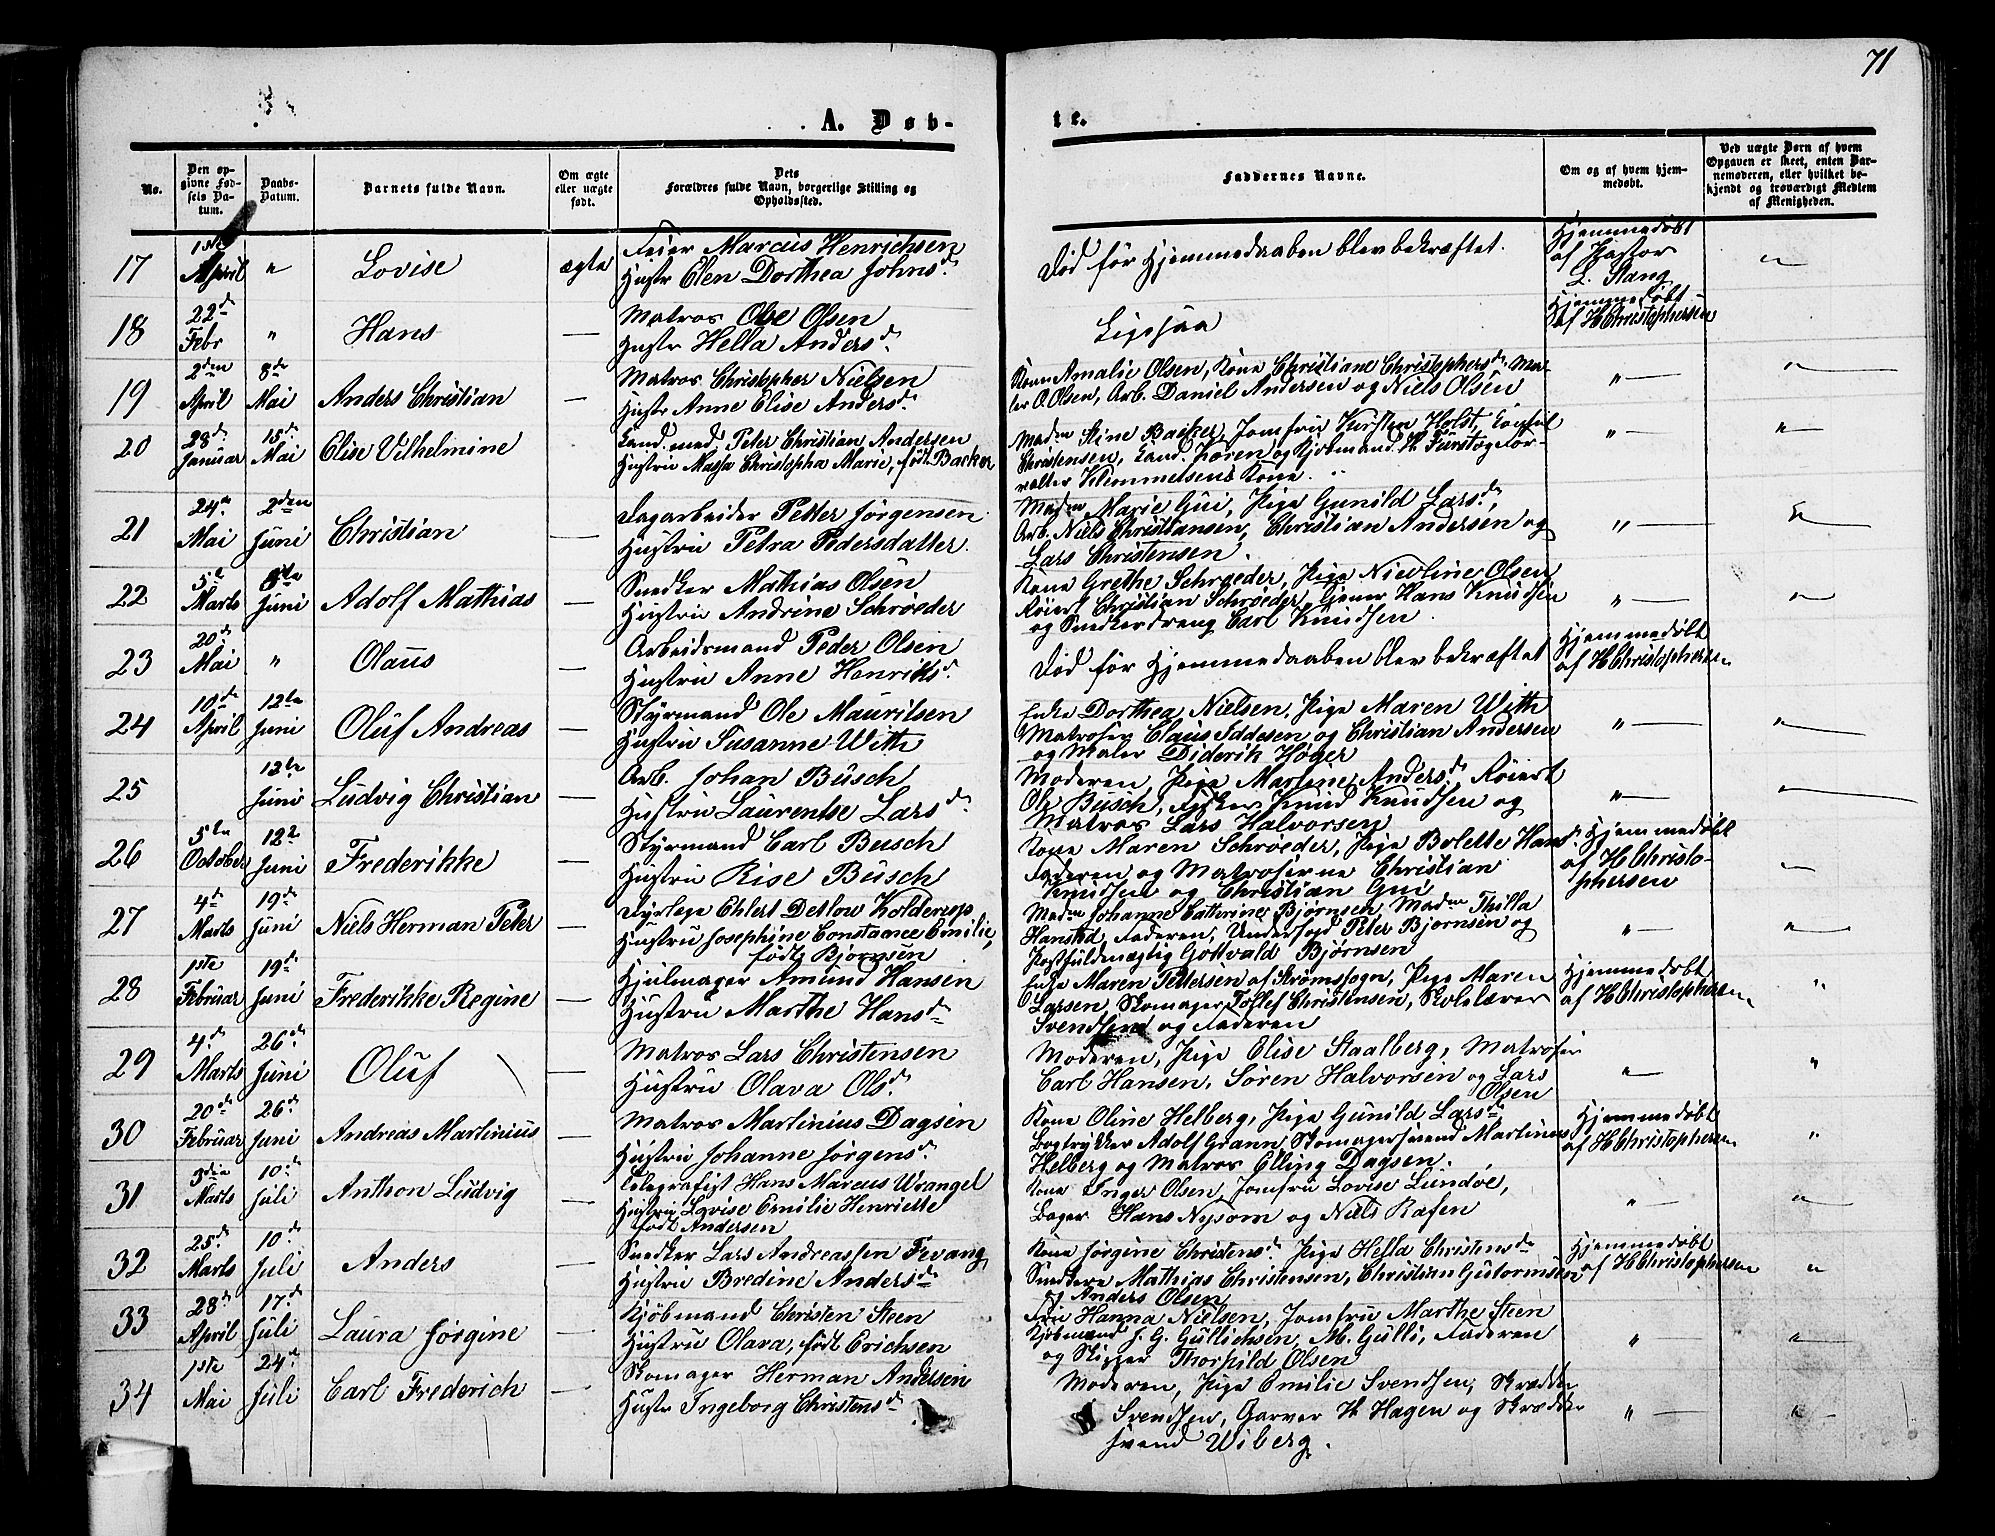 71
A. Døb-
te.
No.
Den op-
givne Fød-
sels Da-
tum.
Daabs-
Datum.
Barnets fulde Navn.
Om ægte
eller uægte
født.
Dets
Forældres fulde Navn, borgerlige Stilling og
Opholdssted.
Faddernes Navne.
Om og af hvem hjem-
medøbt.
Ved uægte Børn af hvem
Opgaven er skeet, enten Bar-
nemoderen, eller hvilket be-
kjendt og troværdigt Medlem
af Menigheden.
17
1ste
April
"
Lovise
ægte
Feier Marcus Henrichsen
Hustr Elen Dorthea Johns d.
Død før Hjemmedaaben blev bekræftet.
Hjemmedøbt
af Pastor
L. Stang
"
18
22de
Febr
"
Hans
—
Matros Ole Olsen
Hustr Hella Anders d.
Ligesaa
Hjemmedøbt
af H Christophersen
19
2den
April
8de
Mai
Anders Christian
—
Matros Christopher Nielsen
Hustr Anne Elise Anders d.
Kone Amalie Olsen, Kone Christiane Christophers d. Ma-
ler O. Olsen, Arb. Daniel Andersen og Niels Olsen
"—
"—
20
28d.
Januar
15d.
Mai
Elise Vilhelmine
—
Cand. med. Peter Christian Andersen
Hustru Massa Christopha Marie, født Backer
Madm Stine Backer, Jomfru Kirsten Holst, Consul
Christensen, Cand. Kæren og Kjøbmand H. Furst og For-
valter Klemmetsens Kone.
"—
"—
21
24de
Mai
2den
Juni
Christian
—
Dagarbeider Petter Jørgensen
Hustru Petra Pedersdatter.
Madm Marie Gui, Pige Gunild Lars d.,
Arb. Niels Christiansen, Christian Andersen og
Lars Christensen.
"—
"—
22
5te
Marts
8de
Juni
Adolf Mathias
—
Snedker Mathias Olsen
Hustru Andrine Schrøeder
Kone Grethe Schrøeder, Pige Nicoline Olsen
Røiert Christian Schrøeder, Tjener Hans Knudsen
og Snedkerdreng Carl Knudsen.
"—
"—
23
20de
Mai
"
Olaus
—
Arbeidsmand Peder Olsen
Hustru Anne Henriks d.
Død før Hjemmedaaben blev bekræftet
Hjemmedøbt
af H Christophersen
24
10de
April
12te
Juni
Oluf Andreas
—
Styrmand Ole Mauritsen
Hustru Susanne With
Enke Dorthea Nielsen, Pige Maren With
Matroser Claus Iddesen og Christian Andersen
og Maler Diderik Høger
"—
"—
25
12te
Juni
Ludvig Christian
—
Arb. Johan Busch
Hustru Laurentse Lars d.
Moderen, Pige Martene Anders d. Røiert
Ole Busch, Fisker Knud Knudsen og
Matros Lars Halvorsen
"—
"—
26
5te
October
12te
Juni
Frederikke
—
Styrmand Carl Busch
Hustru Rise Busch
Kone Maren Schrøeder, Pige Bolette Hans d.
Faderen og Matroserne Christian
Knudsen og Christian Gui
Hjemmedøbt
af H Christo-
phersen
"—
27
4de
Marts
19de
Juni
Niels Herman Peter
—
Dyrlæge Ehlert Detlow Kolderup
Hustru Josephine Constance Emilie,
født Bjørnsen
Madm Johanne Cathrine Bjørnsen, Madm Thilla
Hansted, Faderen, Underfogd Peter Bjørnsen og
Postfuldmægtig Gottvald Bjørnsen
"—
"—
28
1ste
Februar
19d.
Juni
Frederikke Regine
—
Hjulmager Amund Hansen
Hustru Marthe Hans d.
Enke Maren Pettersen af Strømssogn, Pige Maren
Larsen, Skomager Tollef Christensen, Skolelærer
Svendsen og Faderen
Hjemmedøbt
af H Christophersen
"
29
4d.
Marts
26de
Juni
Oluf
—
Matros Lars Christensen
Hustru Olava Ols d.
Moderen, Pige Elise Staalberg, Matroser
Carl Hansen, Søren Halvorsen og Lars
Olsen
"—
"
30
20de
Februar
26de
Juni
Andreas Martinius
—
Matros Martinius Dagsen
Hustru Johanne Jørgens d.
Kone Oline Helberg, Pige Gunild Lars d.
Bogtrykker Adolf Grann, Skomagersvend Martinus
Helberg og Matros Elling Dagsen.
Hjemmedøbt
af H Christophersen
"
31
3die
Marts
10de
Juli
Anthon Ludvig
—
Telegrafist Hans Marcus Wrangel
Hustru Lovise Emilie Henriette
født Andersen
Kone Inger Olsen, Jomfru Lovise Lundøe,
Bager Hans Nysom og Niels Rafen
"—
"—
32
25de
Marts
10de
Juli
Anders
—
Snedker Lars Andreassen Fevang
Hustru Bredine Anders d.
Kone Jørgine Christens d. Pige Hella Christens d.
Snedkere Mathias Christensen, Christian Gutormsen
og Anders Olsen
Hjemmedøbt
af H Christophersen
"
33
28de
April
17de
Juli
Laura Jørgine
—
Kjøbmand Christen Steen
Hustru Olava, født Erichsen
Fru Hanna Nielsen, Jomfru Marthe Steen
Kjøbmand J. G. Gullichsen, M. Gulli, Faderen
og Skipper Thorsild Olsen
"
"—
34
1ste
Mai
24de
Juli
Carl Frederich
—
Skomager Herman Andersen
Hustr Ingeborg Christens d.
Moderen, Pige Emilie Svendsen, Skrædder
Svendsen, Garver H. Hagen og Skrædder
svend Wiberg.
"—
"—